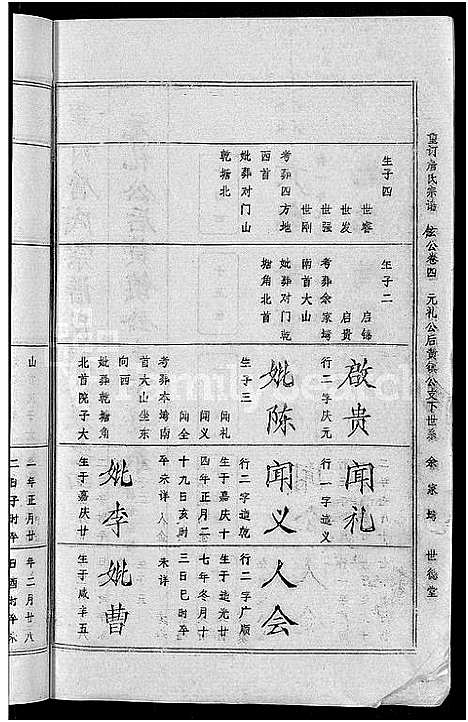 重订唐氏宗谱 铉公卷四 元礼公后黄镇公支下世系 余家塆 世德堂
生子四
世睿
世发
世强
世刚
考葬四方地
西首
妣葬对门山
乾塘北
生子二
启锡
启贵
考葬余家塆
南首大山
妣葬对门乾
塘角北首
啟贵
行二字庆元
妣陈
生子三
闻礼
闻义
闻全
考葬本塆南
首大山坐东
向西
妣葬乾塘角
北首院子大
山
闻礼
行一字造义
闻义
行二字造乾
生于嘉庆十
四年正月二
十九日亥时
卒未详
妣李
生于嘉庆廿
二年正月廿
二日子时卒
人会
行二字广顺
生于道光廿
七年冬月十
三日巳时卒
未详
妣曹
生于咸丰五
年二月廿八
日酉时卒